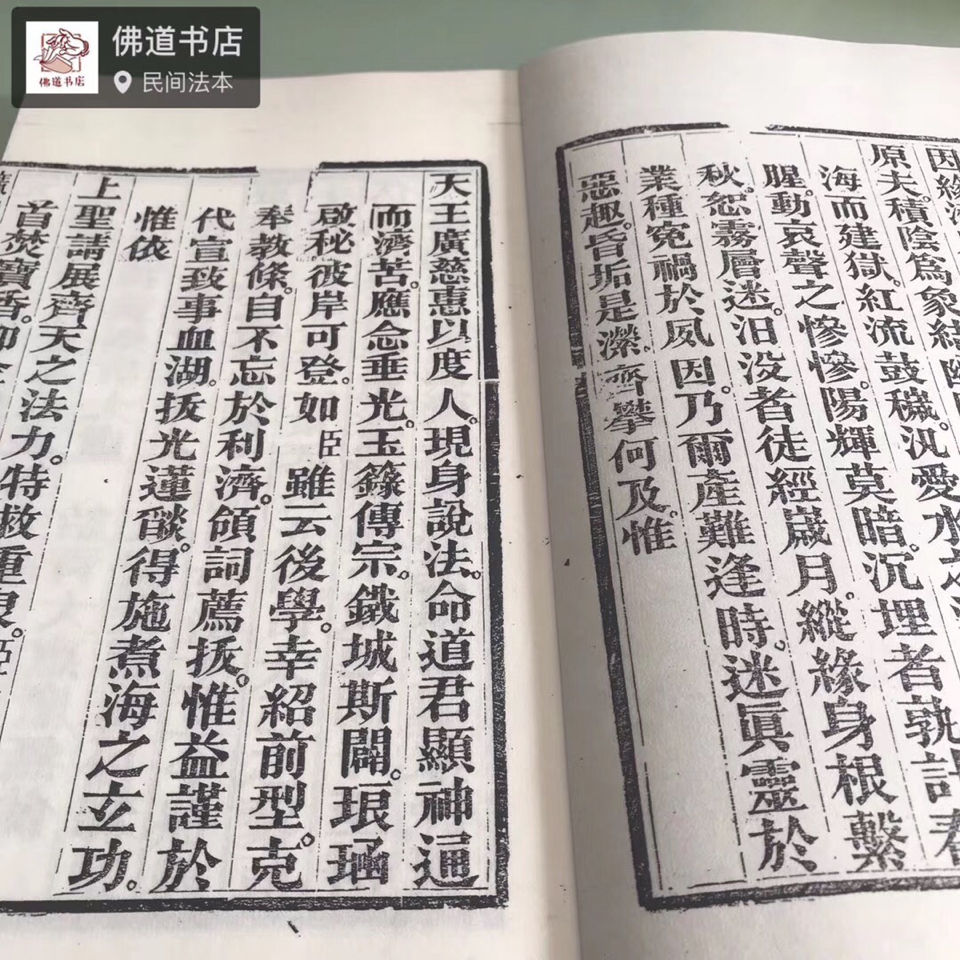 佛道书店
佛道书店
民间法本
因緣
原夫。積陰爲象。結
海而建獄。紅流鼓穢。汎愛水之
腥。動哀聲之慘慘。陽輝莫暗。沉埋者孰計春
秋。怨霧層迷。汨没者徒經歲月。縱緣身根繫
業種冤禍於夙因。乃爾產難逢時。迷眞靈於
惡趣。昏垢是濼。齊攀何及。惟
天王廣慈惠以度人。現身說法。命道君顯神通
而濟苦。應念垂光。玉籙傳宗。鐵城斯闢。琅函
啟秘。彼岸可登。如臣雖云後學。幸紹前型。克
奉教條。自不忘於利濟。領詞薦拔。惟益謹於
代宣。致事血湖。拔光蓮燄。得施煮海之玄功。
惟依
上聖請展齊天之法力。特救重泉。臣
首焚寶香。仰